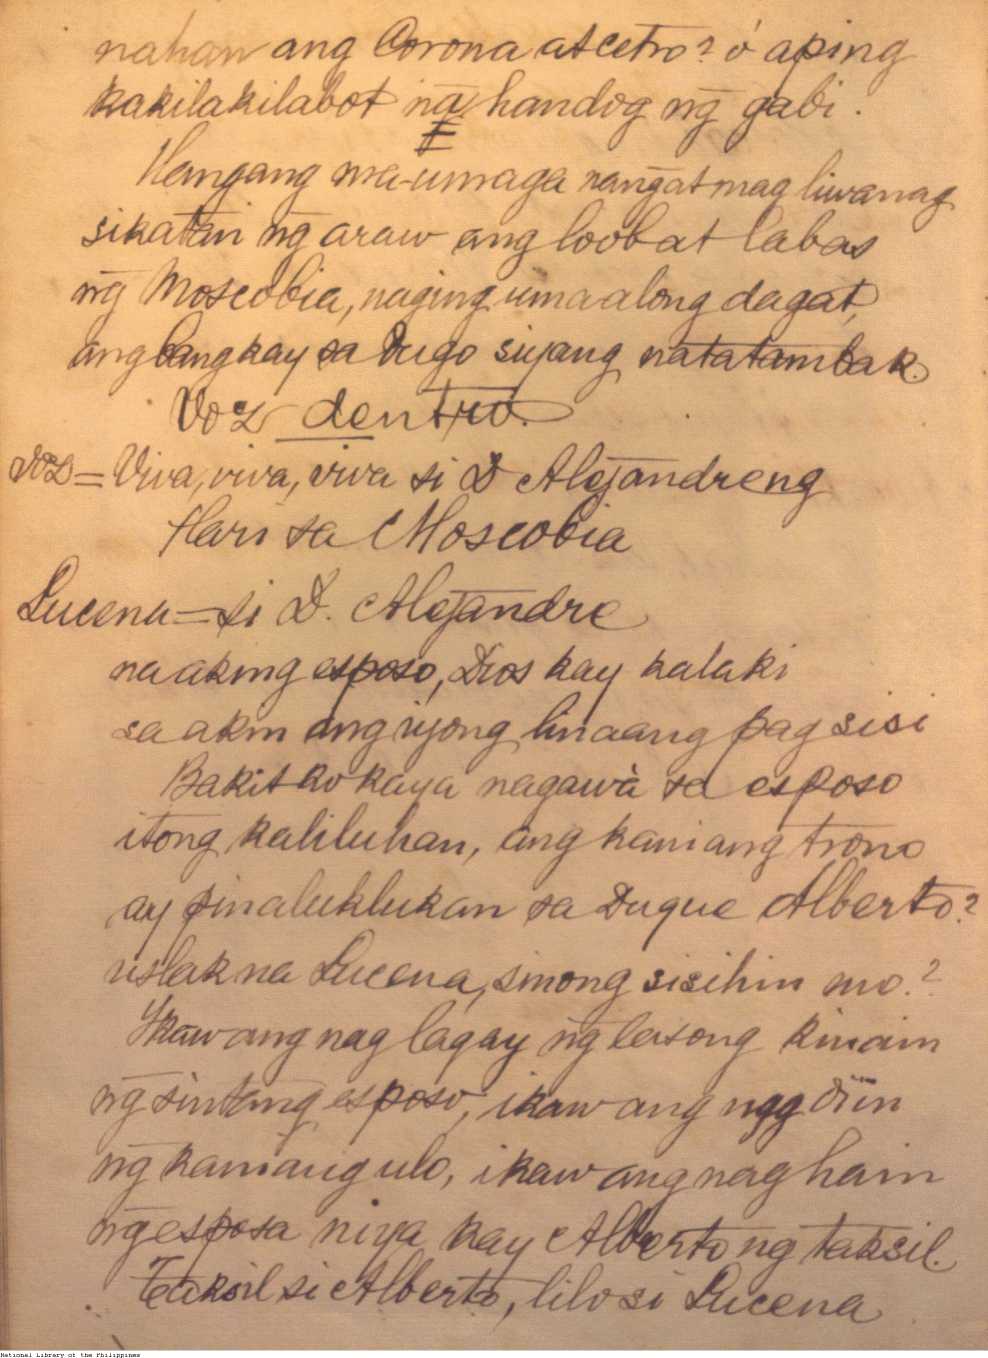 nahan ang Corona at cetro? ó aping
kakilakilabot na handog ng̃ gabi.
Hangang ma-umaga nang̃at mag liwanag
sikatan ng̃ araw ang loob at labas
ng̃ Moscobia, naging umaalong dagat,
ang bangkay sa Dugo siyang natatambak.
Voz dentro.
Voz = Viva, viva, viva si D Alejandreng
Hari sa Moscobia
Lucena = si D. Alejandre
na aking esposo, Dios kay kalaki
sa akin ang iyong linaang pag sisi
Bakit ko kaya nagawà sa esposo
itong kaliluhan, ang kaniang trono
ay pinaluklukan sa Duque Alberto?
uslak na Lucena, sinong sisihin mo?
Ikaw ang nag lagay ng̃ lasong kinain
ng̃ sintang esposo, ikaw ang nag diin
ng̃ kaniang ulo, ikaw ang nag hain
ng̃ esposa niya kay Alberto ng taksil.
Taksil si Alberto, lilo si Lucena
National Library of the Philippines